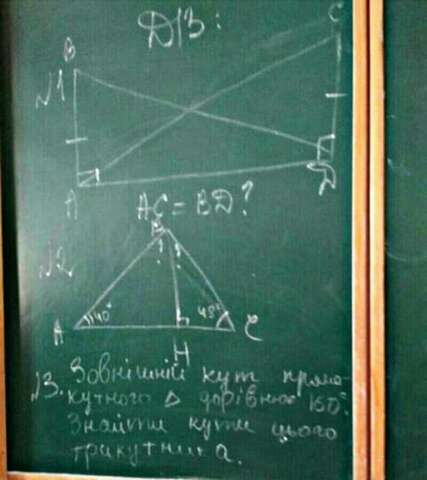 Д/З:
C
B
№1
A
D
AC = BD?
B
№2
? ?
A 40° 48° C
H
№3. Зовнішній кут прямо-
кутного △ дорівнює 150°.
Знайти кути цього
трикутника.